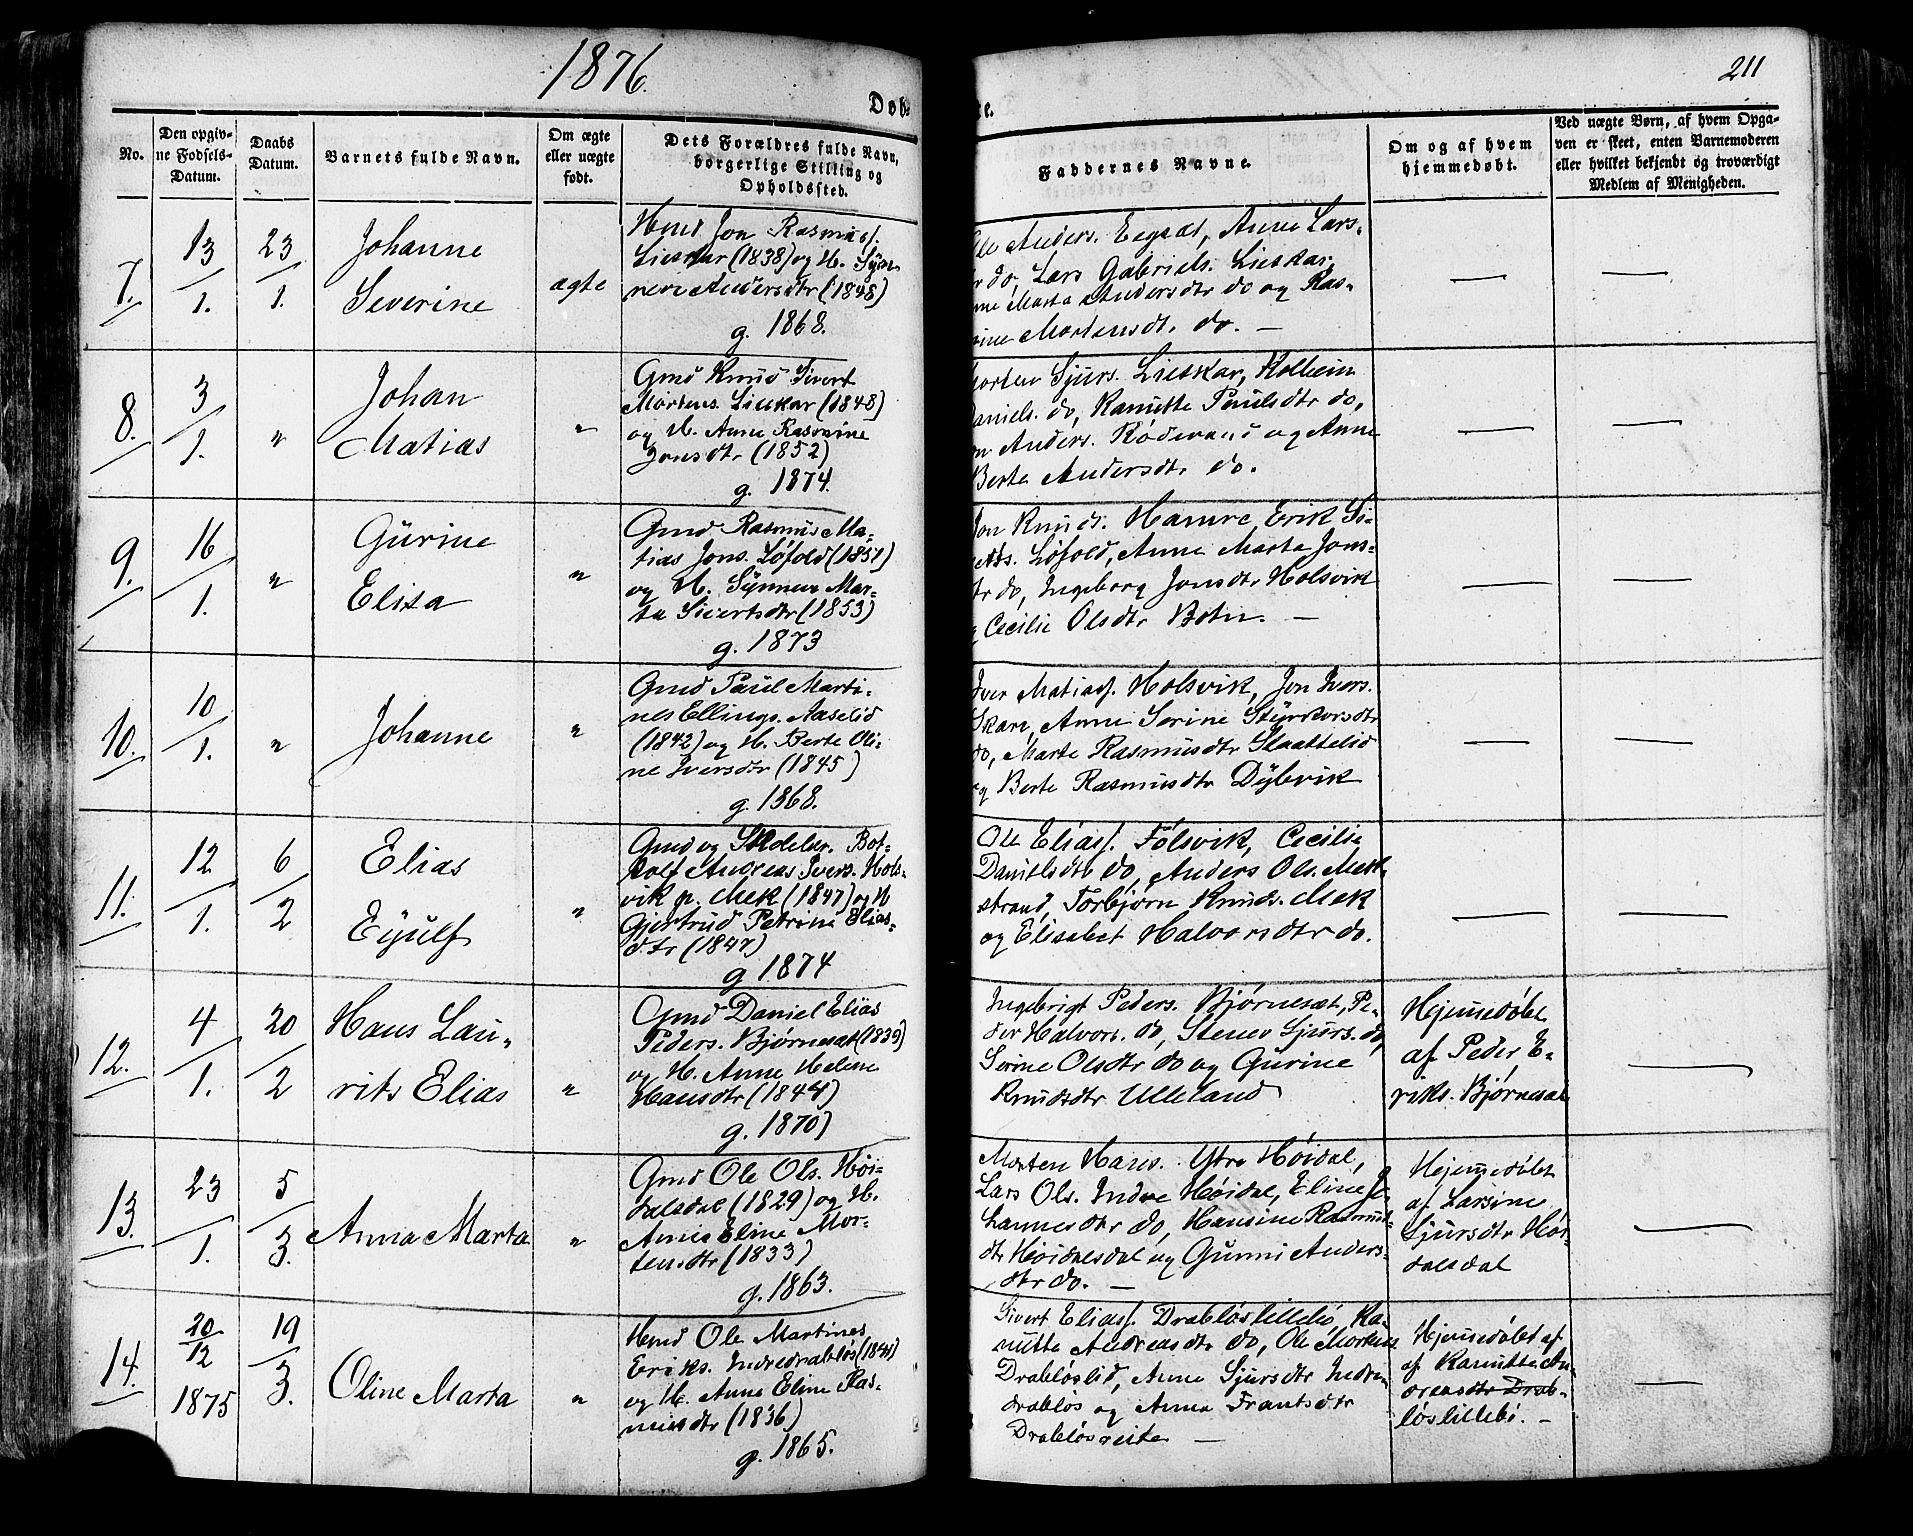 1876.
211
Døb-
te.
No.
Den opgiv-
ne Fødsels-
Datum.
Daabs
Datum.
Barnets fulde Navn.
Om ægte
eller uægte
født.
Dets Forældres fulde Navn,
borgerlige Stilling og
Opholdssted.
Faddernes Navne.
Om og af hvem
hjemmedøbt.
Ved uægte Børn, af hvem Opga-
ven er skeet, enten Barnemoderen
eller hvilket bekjendt og troværdigt
Medlem af Menigheden.
7.
13/1.
23/1.
Johanne
Severine
ægte
Hmd Jon Rasmusf.
Lieskar (1838) og H. Syn-
neve Andersdtr (1848)
g. 1868.
Ole Anders. Eegsæt, Anne Lars-
dtr do, Lars Gabriels. Lieskar,
Anne Marta Andersdtr do og Ras-
mine Mortensdtr do. —
—
—
8.
3/1.
"
Johan
Matias
"
Gmd Knud Sivert
Mortens. Lieskar (1848)
og H. Anne Rasmine
Jonsdtr (1852)
g. 1874.
Morten Sjurs. Lieskar, Kolbein
Daniels. do, Kanutte Paulsdtr do,
Anders. Rødsvand og Anne
Berte Andersdtr do.
—
—
9.
16/1.
"
Gurine
Elisa
"
Gmd Rasmus Ma-
tias Jons. Løfold (1851)
og H. Synneve Mar-
ta Sivertsdtr (1853)
g. 1873
Jon Knuds. Hamre, Erik Si-
verts. Løfold, Anne Marta Jons-
dtr do, Ingeborg Jonsdtr Holsvik
og Cecilie Olsdtr Botn. —
—
—
10.
10/1.
"
Johanne
"
Gmd Paul Marti-
nus Ellings. Aaselid
(1842) og H. Berte Oli-
ne Iversdtr (1845)
g. 1868.
Iver Matiasf. Holsvik, Jon Ivers.
Skare, Anne Serine Styrkorsdtr
do, Marte Rasmusdtr Slaattelid
og Berte Rasmusdtr Dybvik
—
—
11.
12/1.
6/2
Elias
Eyulf
"
Gmd og Skolelær. Bot-
holf Andreas Ivers. Hols-
vik p. Mek (1847) og H
Gjertrud Petrine Elias-
dtr (1847)
g. 1874
Ole Eliasf. Følsvik, Cecilie
Danielsdtr do, Anders Ols. Mek-
strand, Torbjørn Knuds. Mek
og Elisabet Halvorsdtr do.
—
—
12.
4/1.
20/2
Hans Lau-
rits Elias
"
Gmd Daniel Elias
Peders. Bjørnesæt (1839)
og H. Anne Helene
Hansdtr (1844)
g. 1870)
Ingebrigt Peders. Bjørnesæt, Pe-
der Halvors. do, Stener Sjurs. do,
Serine Olsdtr do og Gurine
Knudsdtr Ulleland
Hjemmedøbt
af Peder E-
riks. Bjørnesæt
—
13.
23/1.
5/3.
Anna Marta
"
Gmd Ole Ols. Høi-
dalsdal (1829) og H.
Anne Eline Mor-
tensdtr (1833)
g. 1863.
Morten Hans. Ytre Høidal,
Lars Ols. Indre Høidal, Eline Jo-
hannesdtr do, Hansine Rasmus-
dtr Høidalsdal og Gunni Anders-
dtr do. —
Hjemmedøbt
af Larsine
Sjursdtr Høi-
dalsdal
—
14.
20/12
1875
19/3.
Oline Marta
"
Hmd Ole Martines
Eriks. Indredrabløs (1841)
og H. Anne Eline Ras-
musdtr (1836)
g. 1865.
Sivert Eliasf. Drabløslillebø, Ka-
nutte Andreasdtr do, Ole Mortens.
Drabløslid, Anne Sjursdtr Indre-
drabløs og Anna Frantsdtr
Drabløsreite —
Hjemmedøbt af
af Kanutte An-
dreasdtr Drab-
løslillebø. —
—